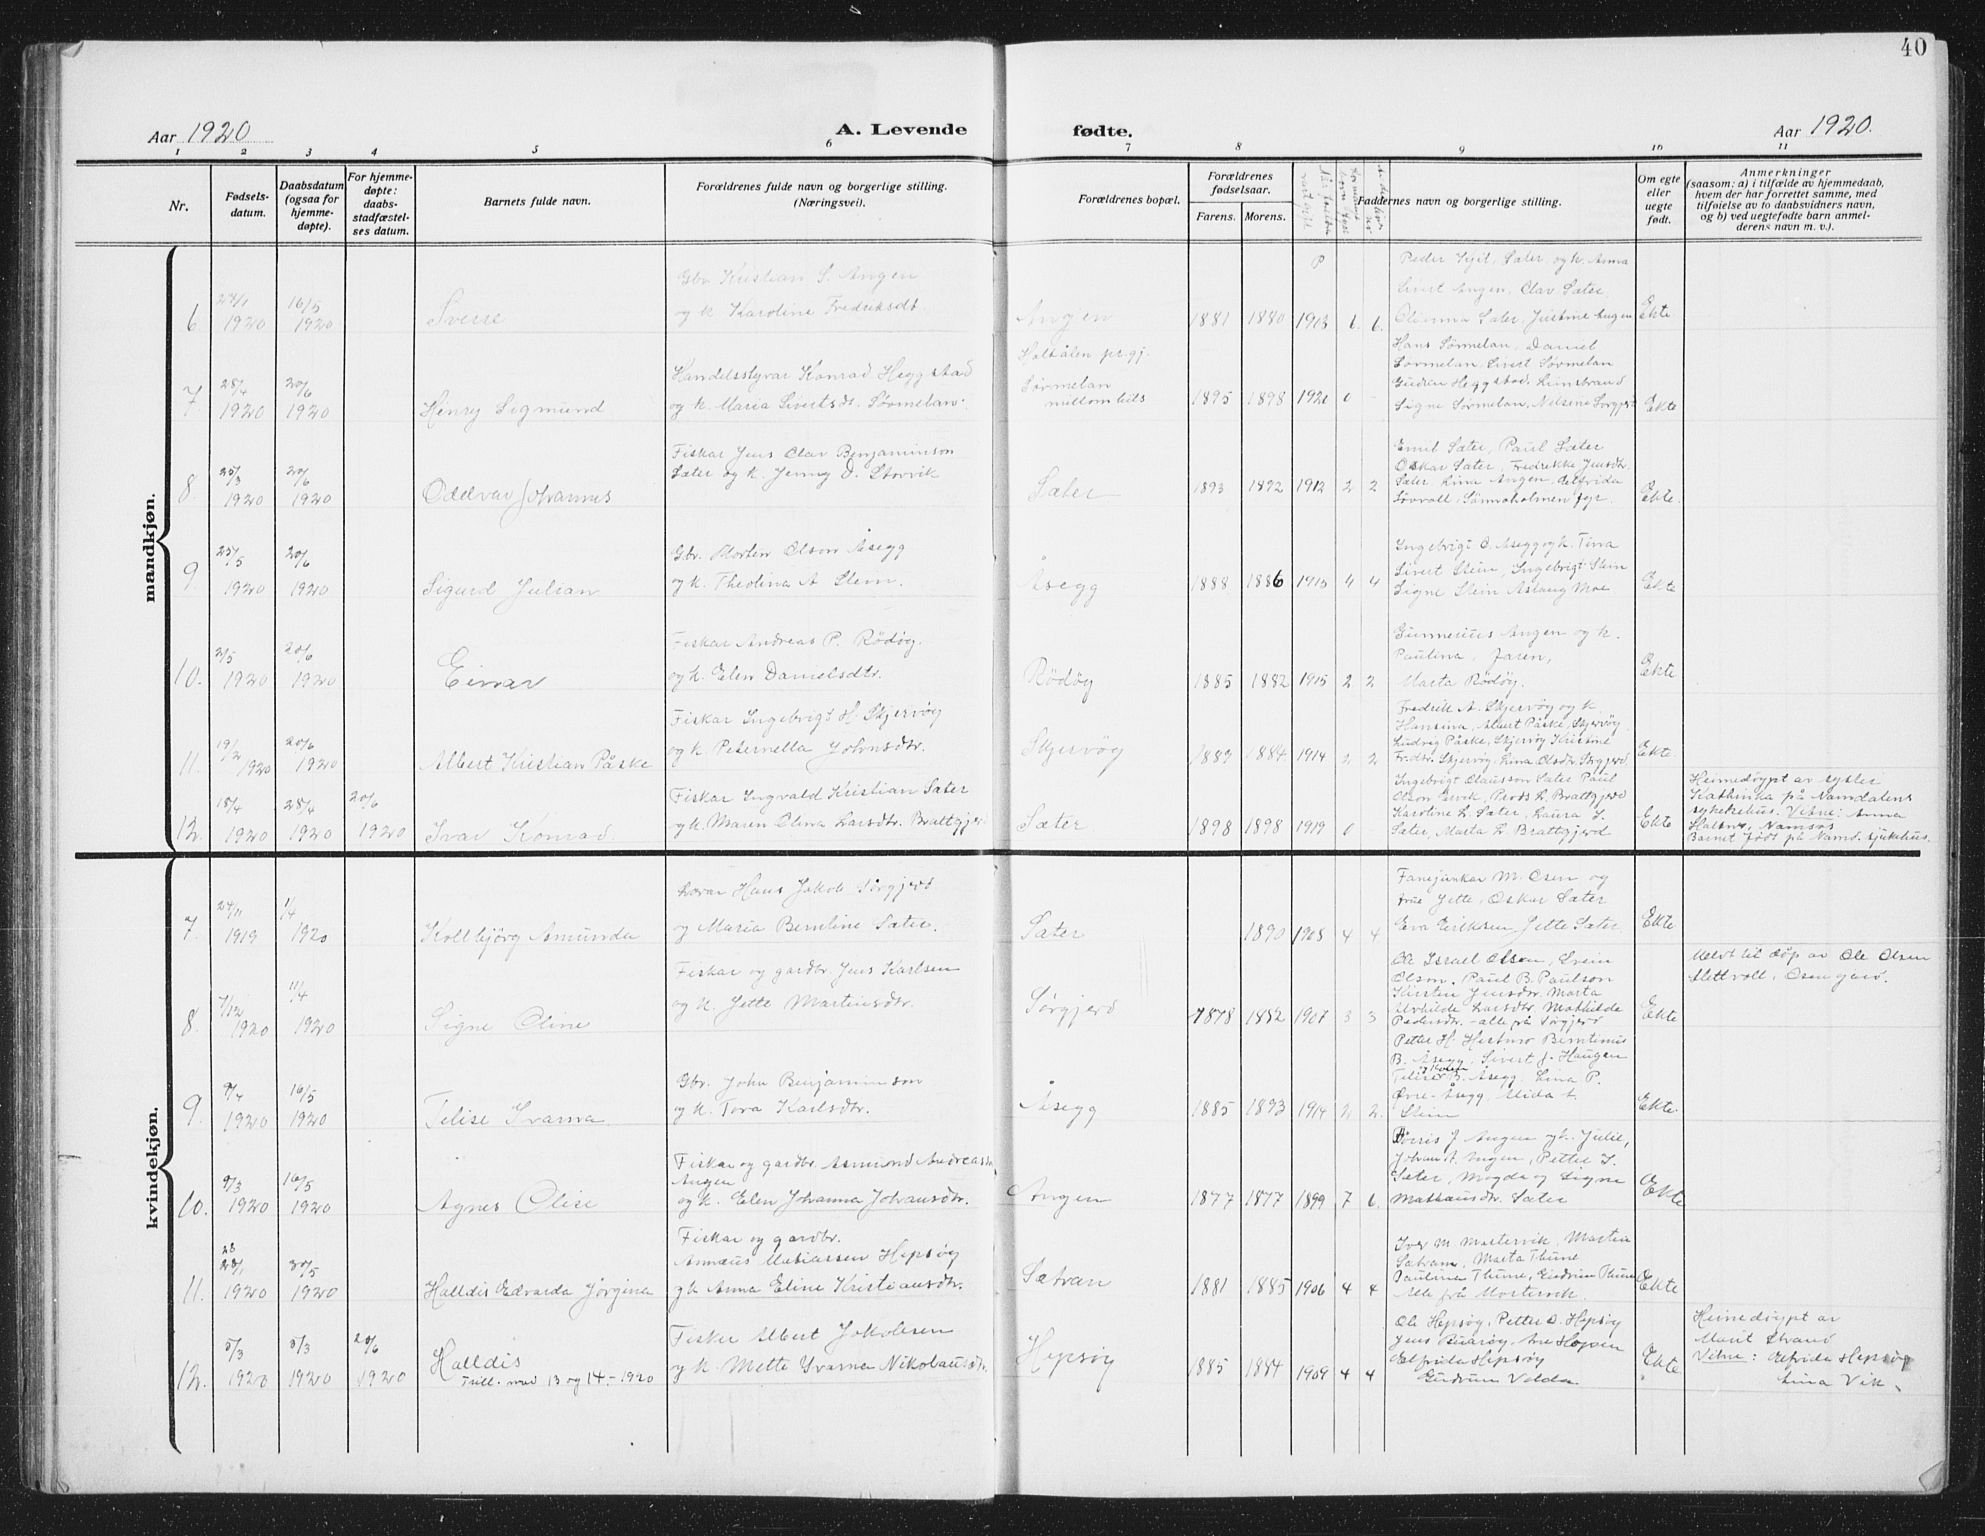 40
Aar 1920
A. Levende
fødte.
Aar 1920.
1 2 3 4 5 6 7 8 9 10 11
Nr.
Fødsels-
datum.
Daabsdatum
(ogsaa for
hjemme-
døpte).
For hjemme-
døpte:
daabs-
stadfæstel-
ses datum.
Barnets fulde navn.
Forældrenes fulde navn og borgerlige stilling.
(Næringsvei).
Forældrenes bopæl.
Forældrenes
fødselsaar.
Farens. Morens.
Faddernes navn og borgerlige stilling.
Om egte
eller
uegte
født.
Anmerkninger
(saasom: a) i tilfælde av hjemmedaab,
hvem der har forrettet samme, med
tilføielse av to daabsvidners navn,
og b) ved uegtefødte barn anmel-
derens navn m. v.).
mandkjøn.
6 1920 16/5 1920 Sverre
Gbr. Kristian S. Angen
og k. Karoline Fredriksdt.
Angen 1881 1880 1903 6. 6.
Sivert Angen, Olav Sæter
Sæter, Justine Angen
Ekte
7 28/4 1920 20/6 1920 Henry Sigmund
Handelsstyrar Konrad Heggstad
og k. Maria Sivertsdt. Sørmelan.
Haltålen pr.gj.
Sørmelan
millombils
1895 1898 1920 0 -
Hans Sørmelan, Daniel
Sørmelan, Sivert Sørmelan
Gudrun Heggstad,
Signe Sørmelan, Nelsine Sørgjerd
Ekte
8 25/3 1920 20/6 1920 Oddvar Johannes
Fiskar Jens Olav Benjaminson
Sæter og k. Jenny D. Storvik
Sæter 1893 1892 1912 2 2
Emil Sæter, Paul Sæter
Oskar Sæter, Fredrikke Jensdtr.
Sæter, Lina Angen,
fyr.
Ekte.
9 25/5 1920 20/6 1920 Sigurd Julian
Gbr. Morten Olson Åsegg
og k. Theolina A Stein.
Åsegg 1888 1886 1913 4 4
Ingebrigt O. Åsegg og k. Tina
Sivert Stein, Ingebrigt Stein
Signe Stein Aslaug Moe
Ekte
10. 2/5 1920 20/6 1920 Einar
Fiskar Andreas P. Rödöy.
og k. Elen Danielsdtr.
Rödöy 1885 1882 1915 2 2
Gunnerius Angen og k.
Paulina, Jaren,
Marta Rödöy.
Ekte
11. 19/2 1920 20/6 1920 Albert Kristian Påske
Fiskar Ingebrigt H. Skjervöy
og k. Peternella Johnsdtr.
Skjervöy 1889 1884 1914 2 2
Fredrik A. Skjervöy og k.
Hansina, Albert Påske, Skjervöy
Ludvig Påske, Skjervöy Kristine
Fredr. Skjervöy, Lina Olsdtr. Sørgjerd
Ekte
12. 18/4 1920 28/4 1920 20/6 1920 Ivar Konrad
Fiskar Ingvald Kristian Sæter
og k. Maren Olina Larsdtr. Brattgjerd
Sæter 1898 1898 1919 0
Ingebrigt Clausson Sæter Paul
Olson Brattgjerd
Karoline L. Sæter, Laura I.
Sæter, Marta L. Brattgjerd
Ekte
Heimedöypt av syster
Kathinka på Namdalens
sykehus. Vitne: Anna
Namsos
Barnet født på Namd. sjukehus.
kvindekjøn.
7. 24/11 1919 1/4 1920 Kolbjörg Asmunda
Lærar Hans Jakob Sørgjerd
og Maria Berntine Sæter.
Sæter 1890 1908 4 4
Fanejunkar M. Osen og
frue Jette, Oskar Sæter
Eva Eriksen Jette Sæter
Ekte
8. 7/12 1920 11/4 1920 Signe Oline
Fiskar og gardbr. Jens Karlsen
og k. Jette Martinsdtr.
Sørgjerd 1878 1882 1907 3 3
Ole Israel Olsen,
Olson. Paul B. Paulson
Kirsten Jensdtr. Marta
Larsdtr. Mathilde
Pedersdtr. - alle på Sørgjerd
Ekte
Meldt til döp av Ole Olsen
Slettvoll, Osen gård.
9. 9/4 1920 16/5 1920 Telise Ivarna
Gbr. John Benjaminson
og k. Tora Karlsdtr.
Åsegg 1885 1893 1914 2 2.
Petter H. Berntinus
B. Åsegg, Sivert J. Haugen
Telise B. Åsegg. Lina P.
Øvre-Åsegg, Alida A
Stein
Ekte.
10. 9/3 1920 16/5 1920 Agnes Olise
Fiskar og gardbr. Asmund Andreassn
Angen
og k. Elen Johanna Johansdtr.
Angen 1877 1877 1899 7 6.
J. Angen og k. Julie,
Johan A. Angen, Petter I.
Sæter, Magda og Signe
Mathausdtr. Sæter
Ekte
11. 28 1920 30/5 1920 Halldis Edvarda Jörgina
Fiskar og gardbr.
Annæus Mathiassen Hepsöy
og k Anna Eline Kristiansdtr.
Sætran 1881 1885 1906 4 4
Iver M. Mortervik, Martin
Sætran, Marta Thune
Paulina Thune, Gudrun Thune
Alle på Mortervik.
Ekte
12. 5/3 1920 5/3 1920 20/6 1920 Halldis
Trill. med 13 og 14 - 1920
Fisker Albert Jakobsen
og k. Mette Ivarna Nikolausdtr.
Hepsöy 1885 1884 1909 4 4
Ole Hepsöy, Petter O. Hepsöy
Jens Buaröy, Ane Hopen
Elfrida Hepsöy
Gudrun Velde
Ekte
Heimedöypt av
Marit Strand
Vitne: Elfrida Hepsöy
Lina Vik.